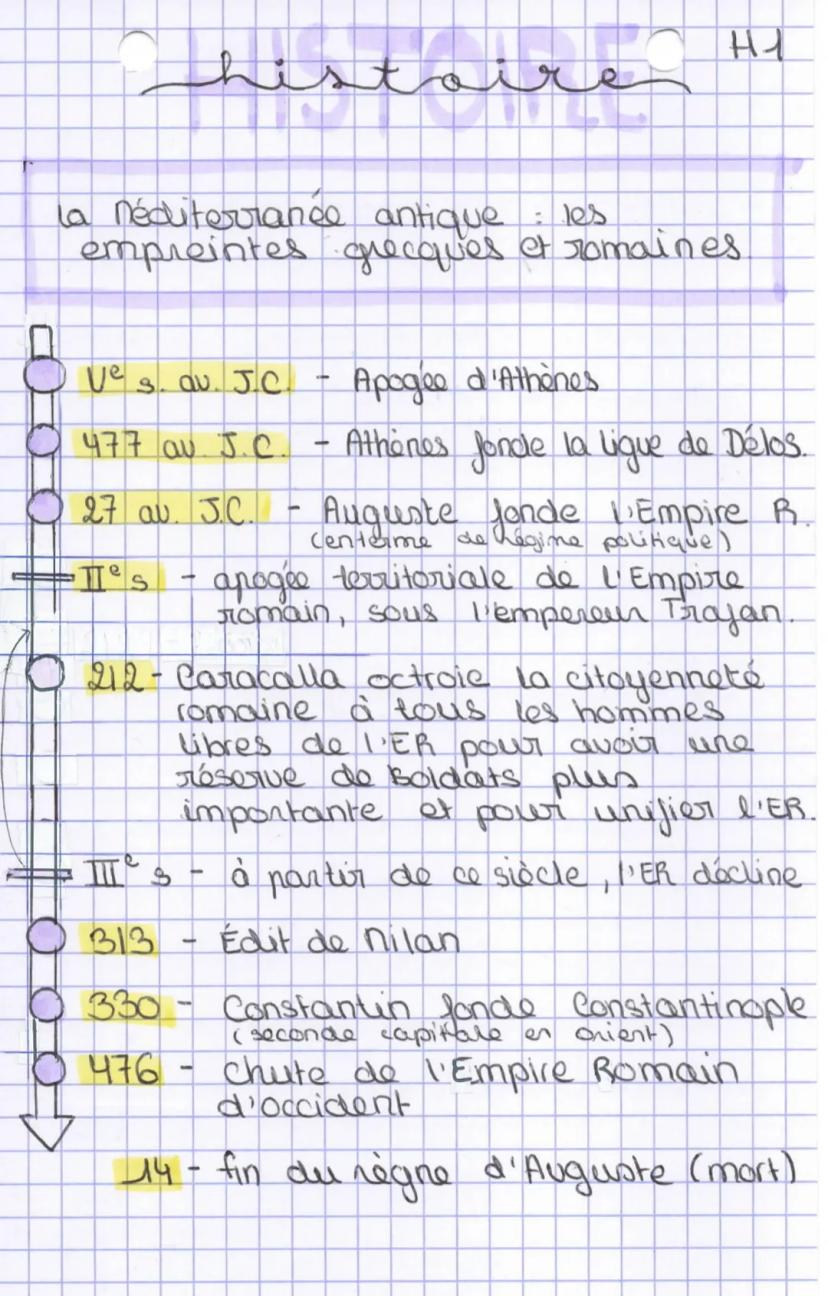 HISTOIRE
histoire
H1
La Méditerranée antique : les
empreintes grecques et romaines
Ve s. av. J.C. - Apogée d'Athènes
477 av J.C. - Athènes fonde la ligue de Délos.
27 av. J.C. - Auguste fonde l'Empire R.
(en terme de régime politique)
IIe s - apogée territoriale de l'Empire
romain, sous l'empereur Trajan.
212 - Caracalla octroie la citoyenneté
romaine à tous les hommes
libres de l'ER pour avoir une
réserve de soldats plus
importante et pour unifier l'ER.
IIIe s - à partir de ce siècle, l'ER décline
313 - Édit de Milan
330 - Constantin fonde Constantinople
(seconde capitale en orient)
476 - chute de l'Empire Romain
d'occident
14 - fin du règne d'Auguste (mort)